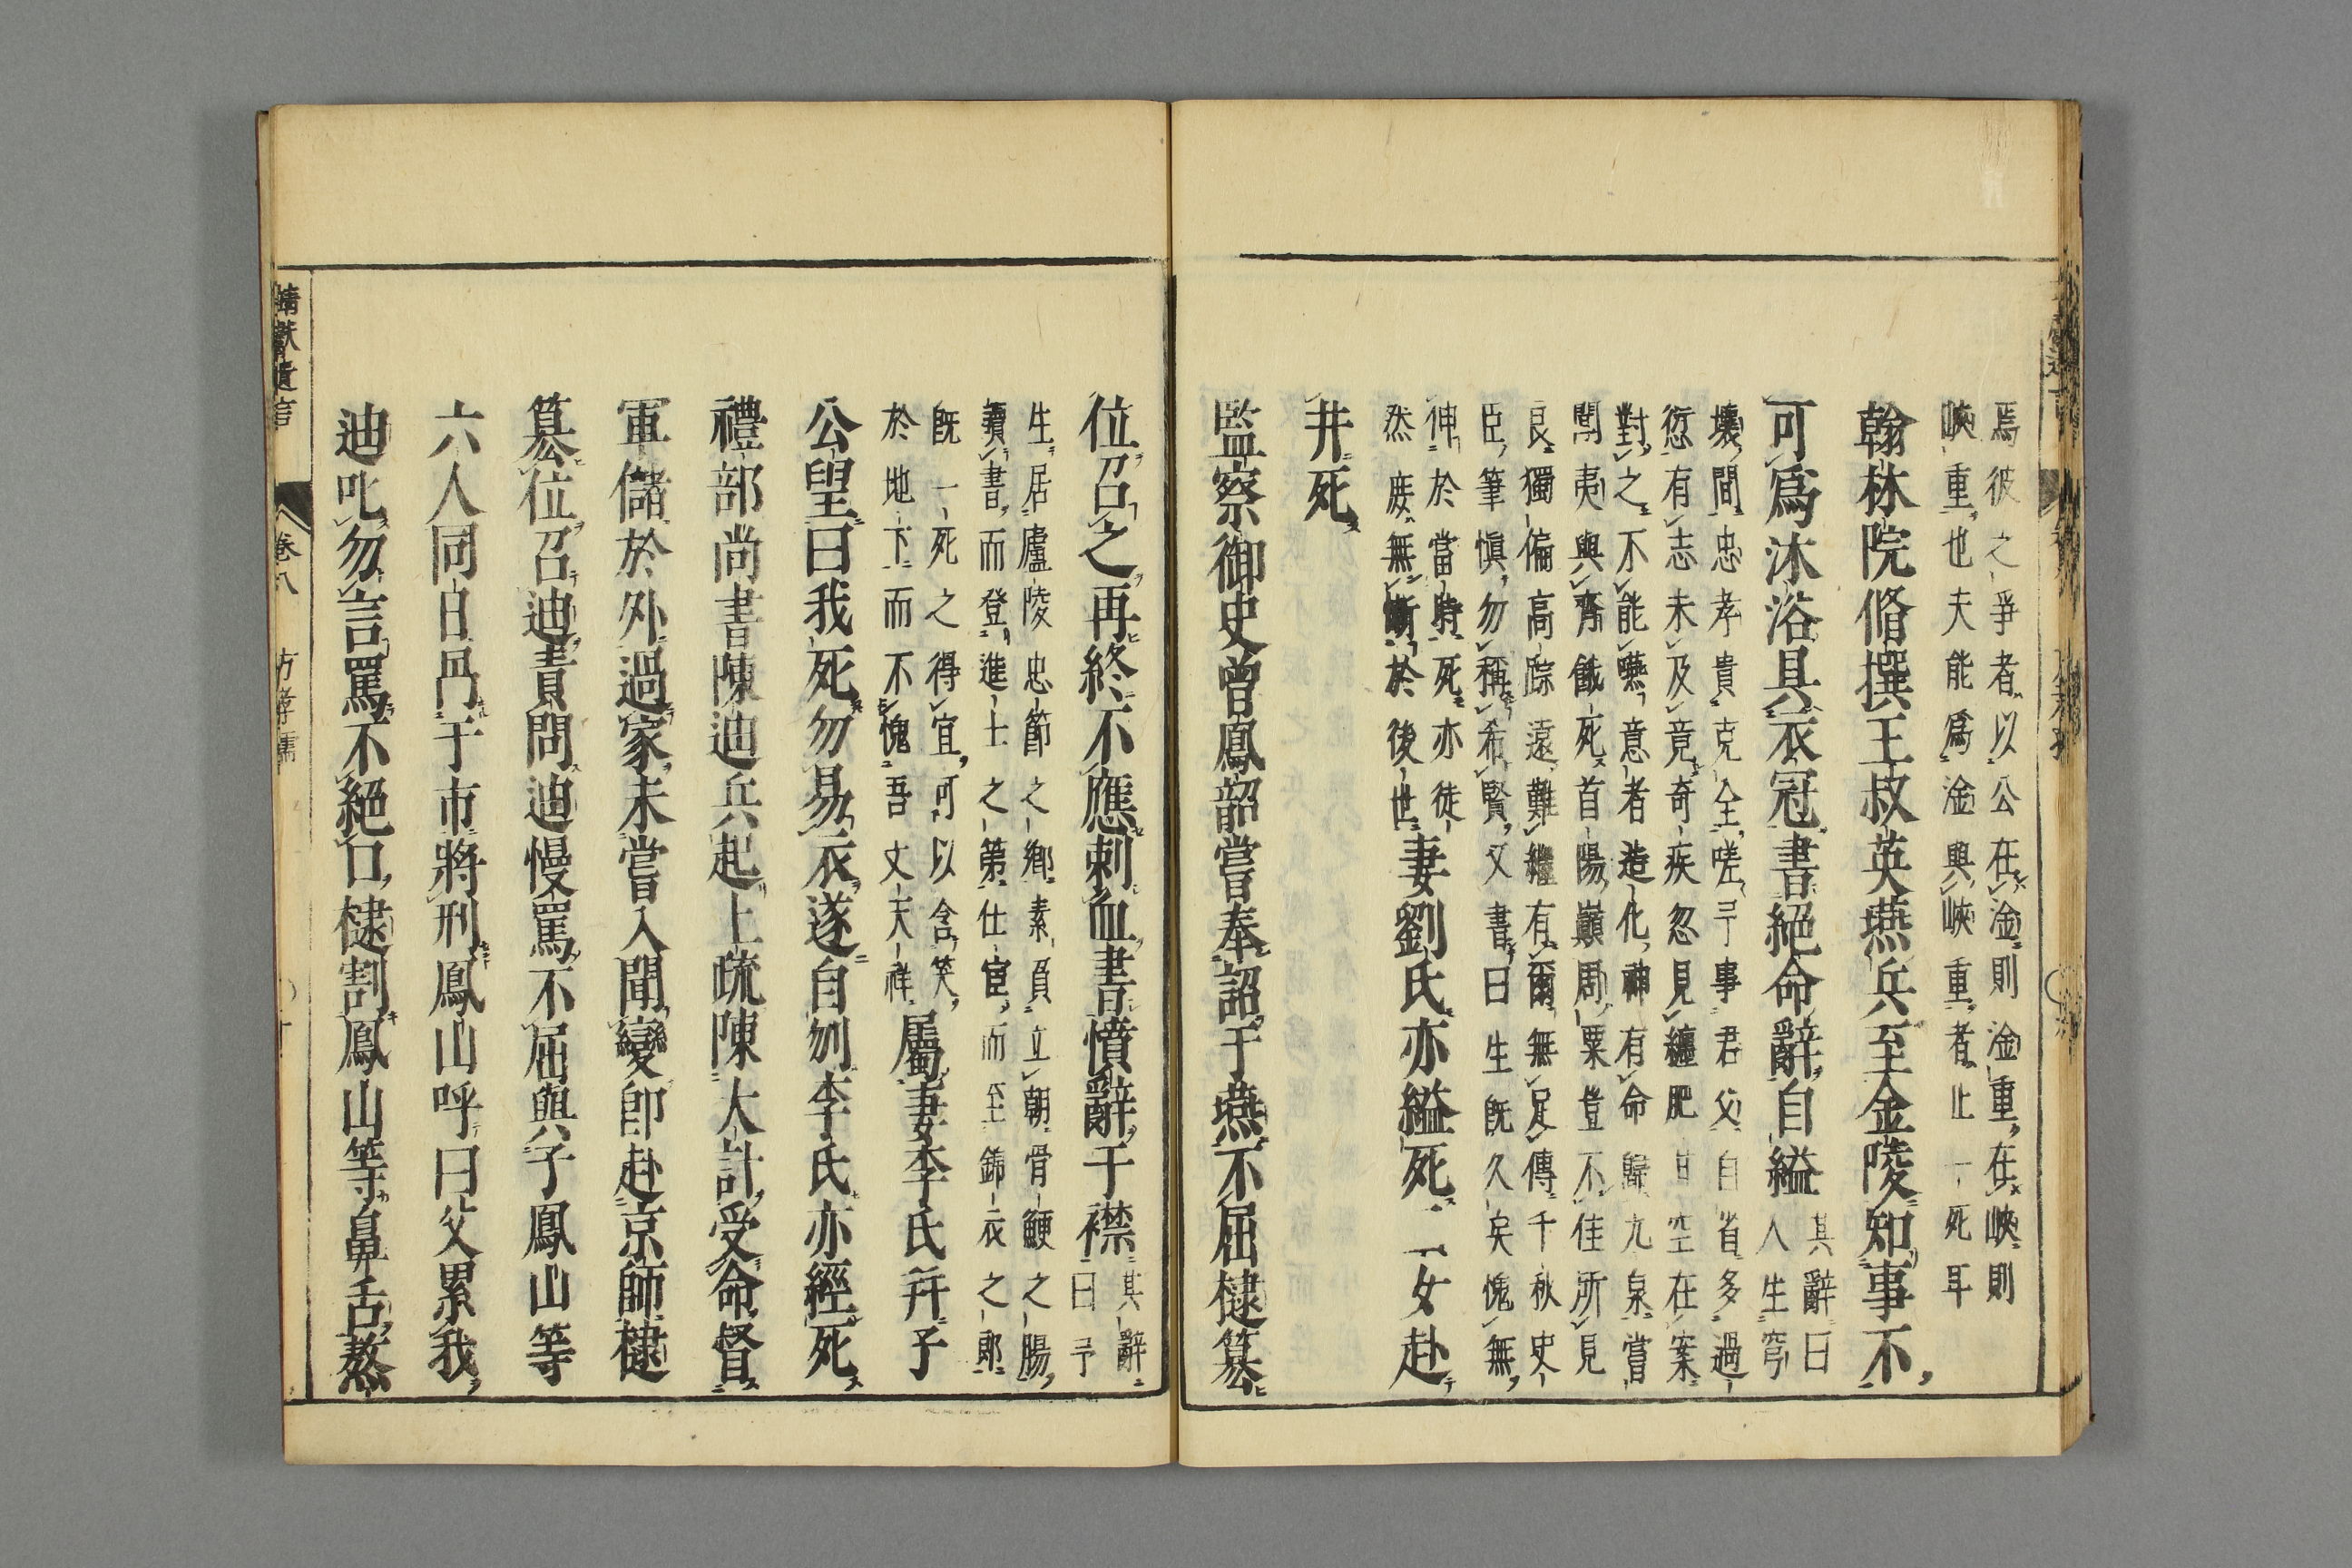 焉彼之爭者以公在淦則淦重在峽則
峽重也夫能爲淦與峽重者止一死耳
翰林院脩撰王叔英燕兵至金陵知事不
可爲沐浴具衣冠書絕命辭自縊
其辭曰
人生穹
壤間忠孝貴克全嗟予事君父自省多過
愆有志未及竟奇疾忽見纏肥甘空在案
對之不能嚥意者造化神有命歸九泉嘗
聞夷與齊餓死首陽巔周粟豈不佳所見
良獨偏高踪遠難繼有爾無足傳千秋史
臣筆愼勿稱希賢又書曰生既久矣愧無
伸於當時死亦徒
然庶無慚於後世
妻劉氏亦縊死二女赴
井死
監察御史曾鳳韶嘗奉詔于燕不屈棣篡
位召之再終不應刺血書憤辭于襟
其辭
曰予
生居廬陵忠節之鄉素負立朝骨鯁之腸
讀書而登進士之第仕宦而至錦衣之郎
既一死之得宜可以含笑
於地下而不愧吾文天祥
屬妻李氏幷子
公望曰我死勿易衣遂自刎李氏亦經死
禮部尚書陳迪兵起上疏陳大計受命督
軍儲於外過家未嘗入聞變卽赴京師棣
篡位召迪責問迪慢罵不屈與子鳳山等
六人同日冎于市將刑鳳山呼曰父累我
迪叱勿言罵不絕口棣割鳳山等鼻舌熬
靖獻遺言 卷八 方孝孺 十